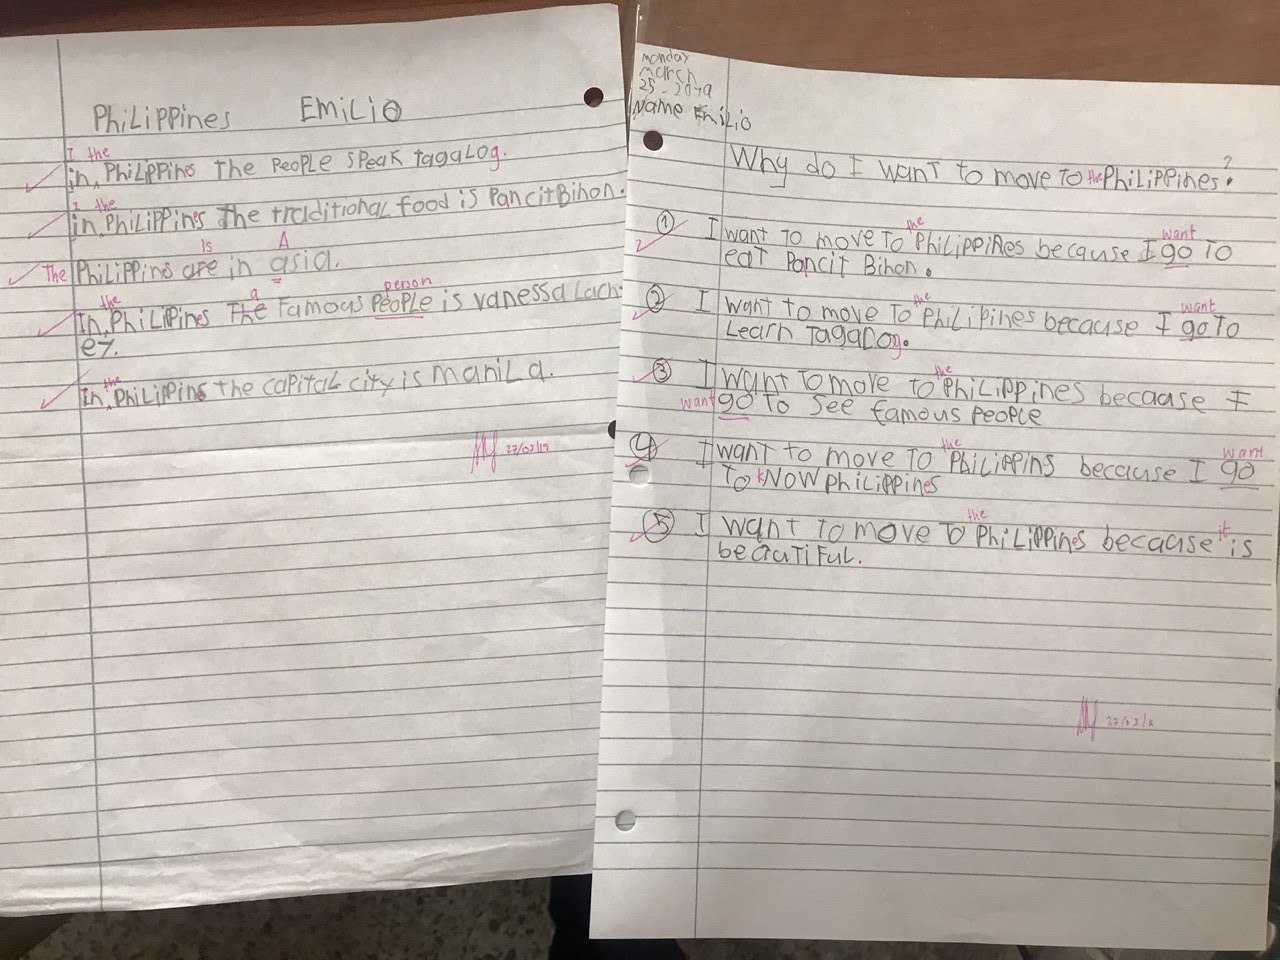 Philippines Emilio
I the
in Philippins The people speak tagalog.
I the
in Philippines The traditional food is Pancit Bihon.
is A
The Philippins are in asia.
the a person
In Philipines The Famous People is vanessa Lach
ey.
the
In Philippins the capital city is manila.
27/03/19
monday
march
25-2019
Name Emilio
?
Why do I want to move to the Philippines.
the want
① I want to move to Philippines because I go to
eat Pancit Bihon.
the want
② I want to move to Philipines because I go to
Learn Tagalog.
the
③ I want to move to Philippines because I
want go to see famous people
the want
④ I want to move to Philippins because I go
to know philippines
the it
⑤ I want to move to Philippines because is
beautiful.